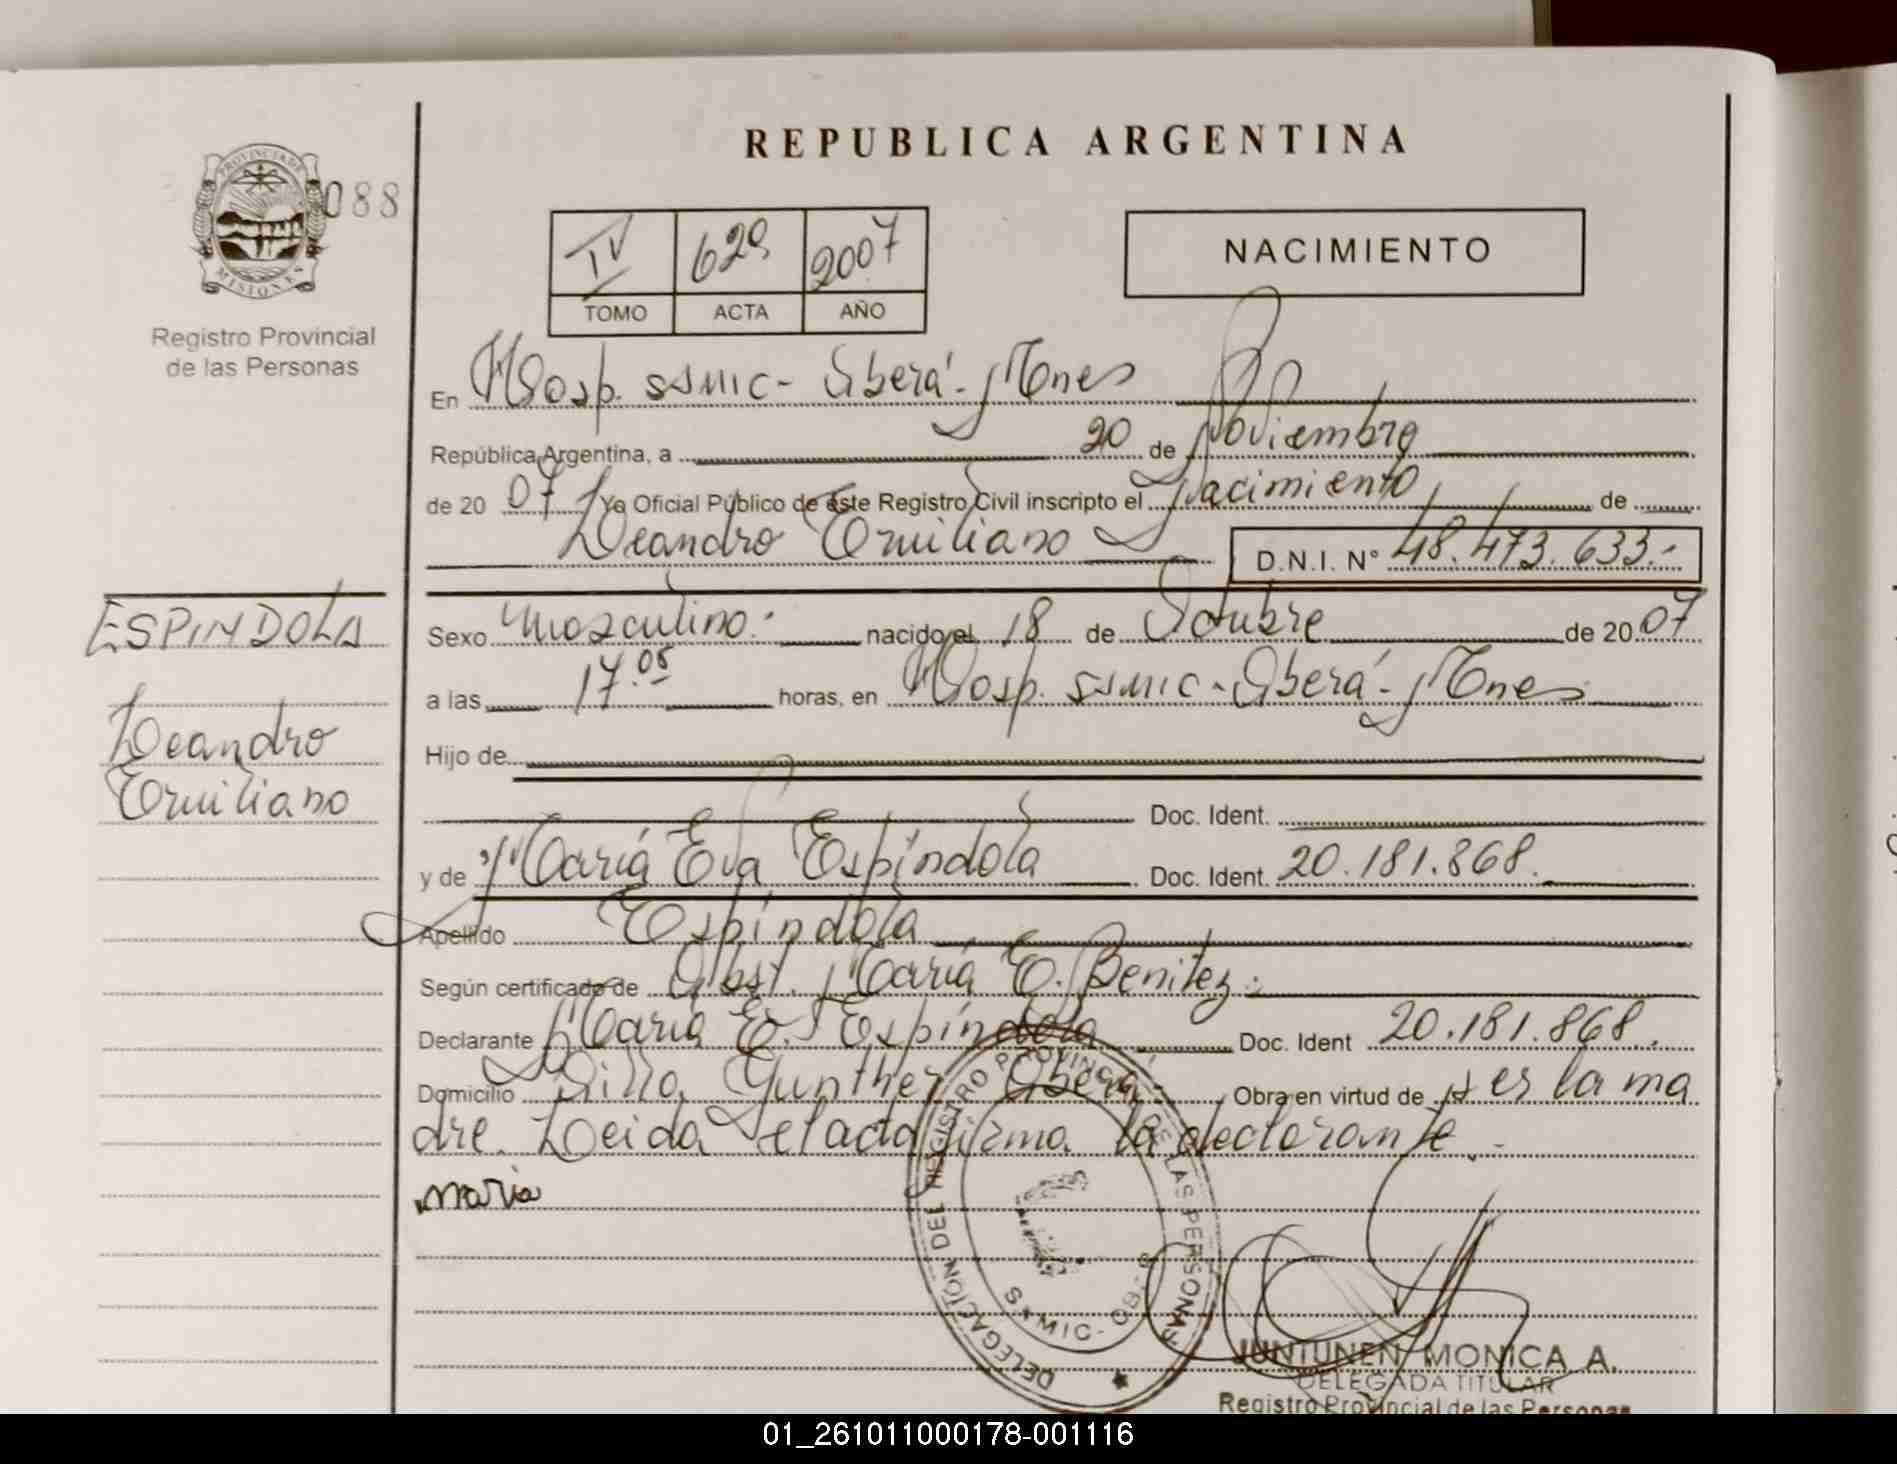 REPUBLICA ARGENTINA
PROVINCIA DE
MISIONES
088
Registro Provincial
de las Personas
IV 629 2007
TOMO ACTA AÑO
NACIMIENTO
En Hosp. SSMIC - Oberá - Mnes
República Argentina, a 20 de Noviembre
de 20 07 Yo Oficial Público de éste Registro Civil inscripto el Nacimiento de
Leandro Emiliano D.N.I. N° 48.473.633.-
ESPINDOLA
Sexo masculino.- nacido el 18 de Octubre de 20 07
a las 17.05 horas, en Hosp. SSMIC - Oberá - Mnes
Leandro
Emiliano
Hijo de
Doc. Ident.
y de María Eva Espíndola Doc. Ident. 20.181.868.
Apellido Espíndola
Según certificado de Obst. María E. Benitez.
Declarante María E. Espíndola Doc. Ident 20.181.868.
Domicilio Villa Gunther Oberá - Obra en virtud de es la ma
dre. Leida el acta firma la declarante.-
maria
DELEGACIÓN DEL REGISTRO PROVINCIAL DE LAS PERSONAS
JUNTUNEN MONICA A.
DELEGADA TITULAR
Registro Provincial de las Personas
01_261011000178-001116